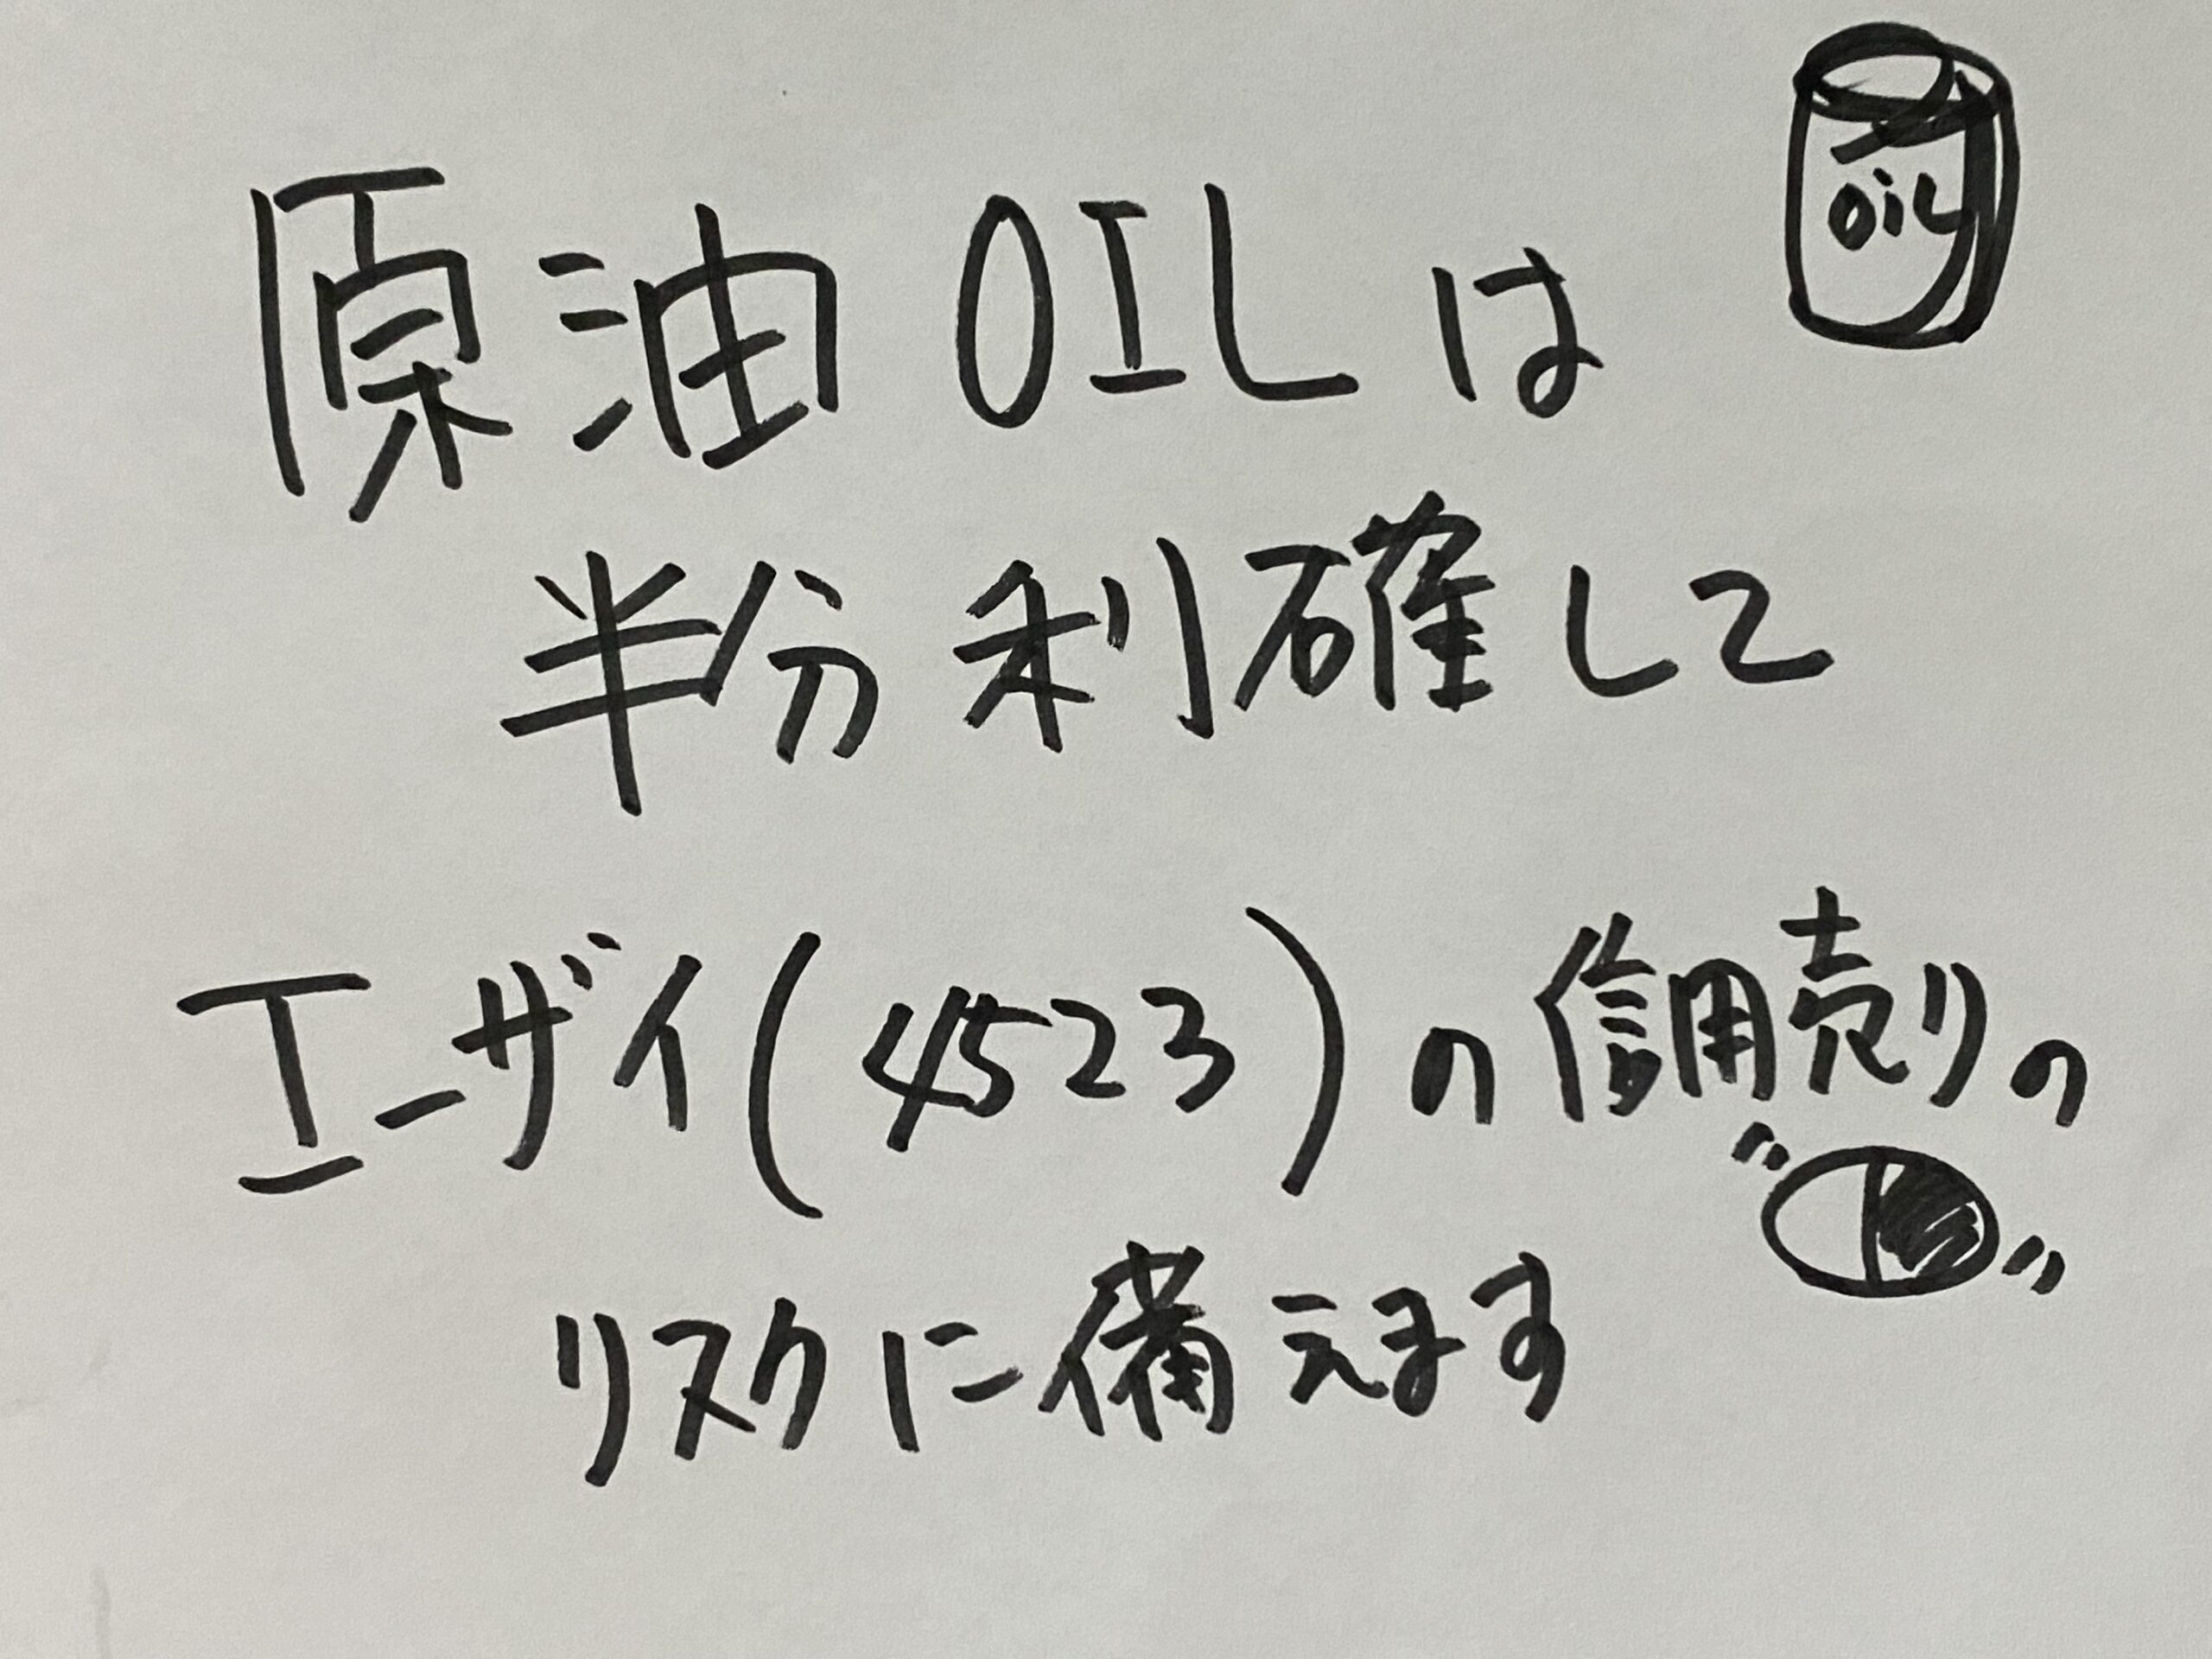 原油 OIL は
OiL
半分利確して
エーザイ(4523)の信用売りの
リスクに備えます